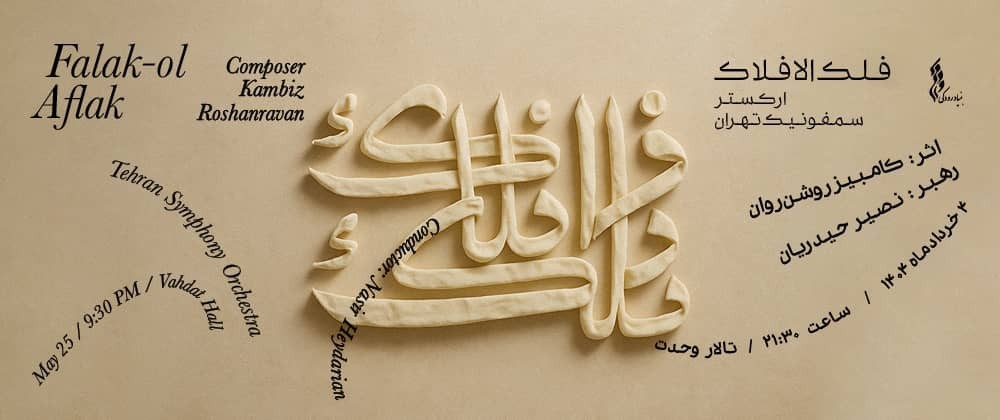 Falak-ol
Aflak
Composer
Kambiz
Roshanravan
Tehran Symphony Orchestra
May 25 / 9:30 PM / Vahdat Hall
Conductor: Nasir Heydarian
فلک الافلاک
فلک‌الافلاک
ارکستر
سمفونیک تهران
بنیاد رودکی
اثر: کامبیز روشن‌روان
رهبر: نصیر حیدریان
۴ خردادماه ۱۴۰۴ / ساعت ۲۱:۳۰ / تالار وحدت